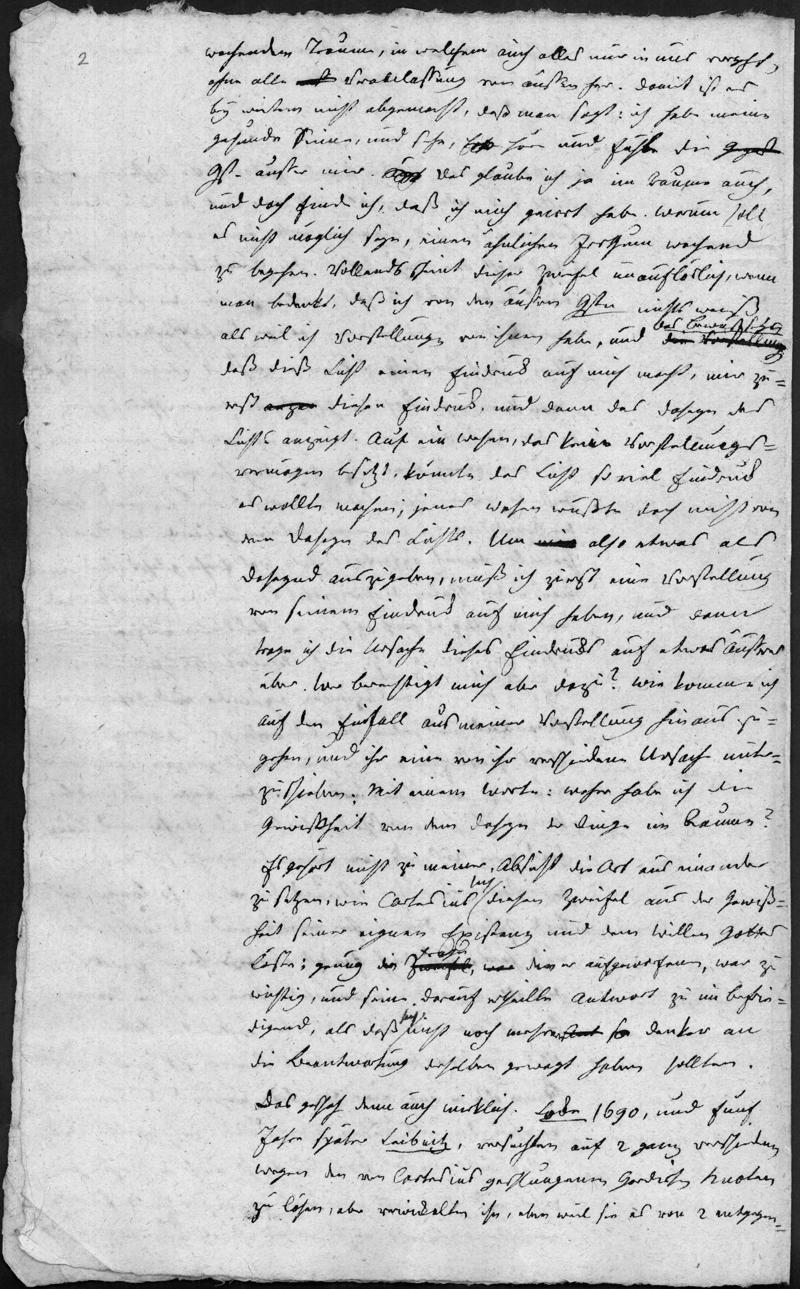 2
wachenden Traume, in welchem auch alles nur in uns vorgeht,
ohne alle Veranlassung von aussen her. Damit ist es
bey weitem nicht abgemacht, daß man sagt: ich habe meine
gesunde Sinne, und sehe, höre und fühle die
Gst. ausser mir. Das glaube ich ja im Traume auch,
und doch finde ich, daß ich mich geirrt habe. Warum soll
es nicht möglich seyn, einen ähnlichen Irrthum wachend
zu begehen. Vollends scheint dieser Zweifel unauflöslich, wenn
man bedenkt, daß ich von den äussern Gstn nichts weiß
als weil ich Vorstellungen von ihnen habe, und das Bewußtseyn
daß dieß Licht einen Eindruck auf mich macht, mir zu=
erst diesen Eindruck, und dann das Daseyn des
Lichts anzeigt. Auf ein Wesen, das kein Vorstellungs=
vermögen besitzt, könnte das Licht so viel Eindruck
es wollte machen; jenes Wesen wüßte doch nichts von
dem Daseyn des Lichts. Um also etwas als
daseyend auszugeben, muß ich zuerst eine Vorstellung
von seinem Eindruck auf mich haben, und dann
trage ich die Ursache dieses Eindrucks auf etwas Äusseres
über. Wer berechtigt mich aber dazu? Wie komme ich
auf den Einfall aus meiner Vorstellung hinaus zu=
gehen, und ihr eine von ihr verschiedene Ursache unter=
zuschieben. Mit einem Worte: woher habe ich die
Gewißheit von dem Daseyn der Dinge im Raume?
Es gehört nicht zu meiner Absicht die Art aus einander
zu setzen, wie Cartesius sich diesen Zweifel aus der Gewiß=
heit seiner eignen Existenz und dem Willen Gottes
löste; genug die Frage, die er aufgeworfen, war zu
wichtig, und seine darauf ertheilte Antwort zu unbefrie=
digend, als daß sich nicht noch mehrere Denker an
die Beantwortung derselben gewagt haben sollten.
Das geschah denn auch wirklich. Locke 1690, und fünf
Jahre später Leibnitz, versuchten auf 2 ganz verschiedenen
Wegen den von Cartesius geschlungenen Gordischen Knoten
zu lösen, aber verwickelten ihn, eben weil sie es von 2 entgegen=